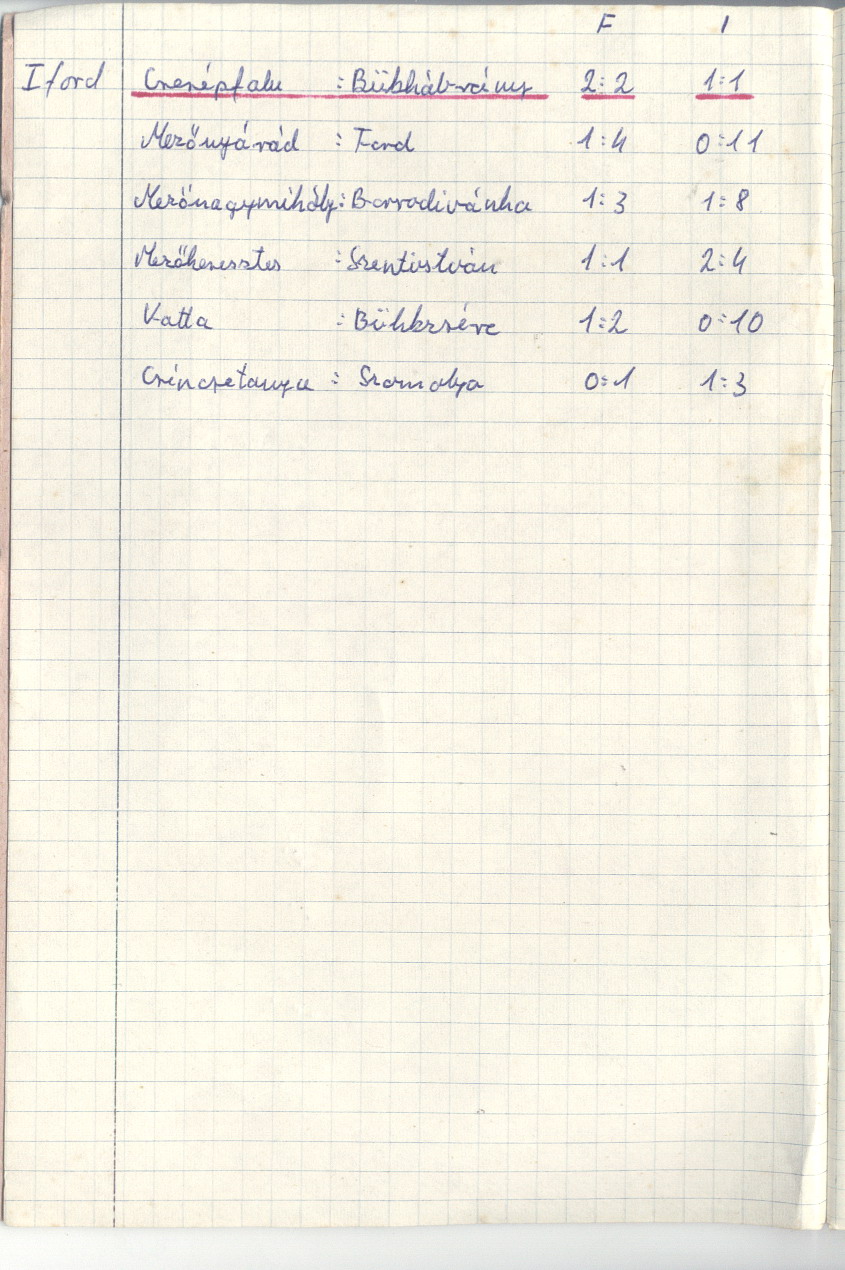 F I
I ford Cserépfalu : Bükkábrány 2:2 1:1
Mezőnyárád : Tard 1:4 0:11
Mezőnagymihály : Borsodivánka 1:3 1:8
Mezőkeresztes : Szentistván 1:1 2:4
Vatta : Bükkzsérc 1:2 0:10
Csincsetanya : Szomolya 0:1 1:3